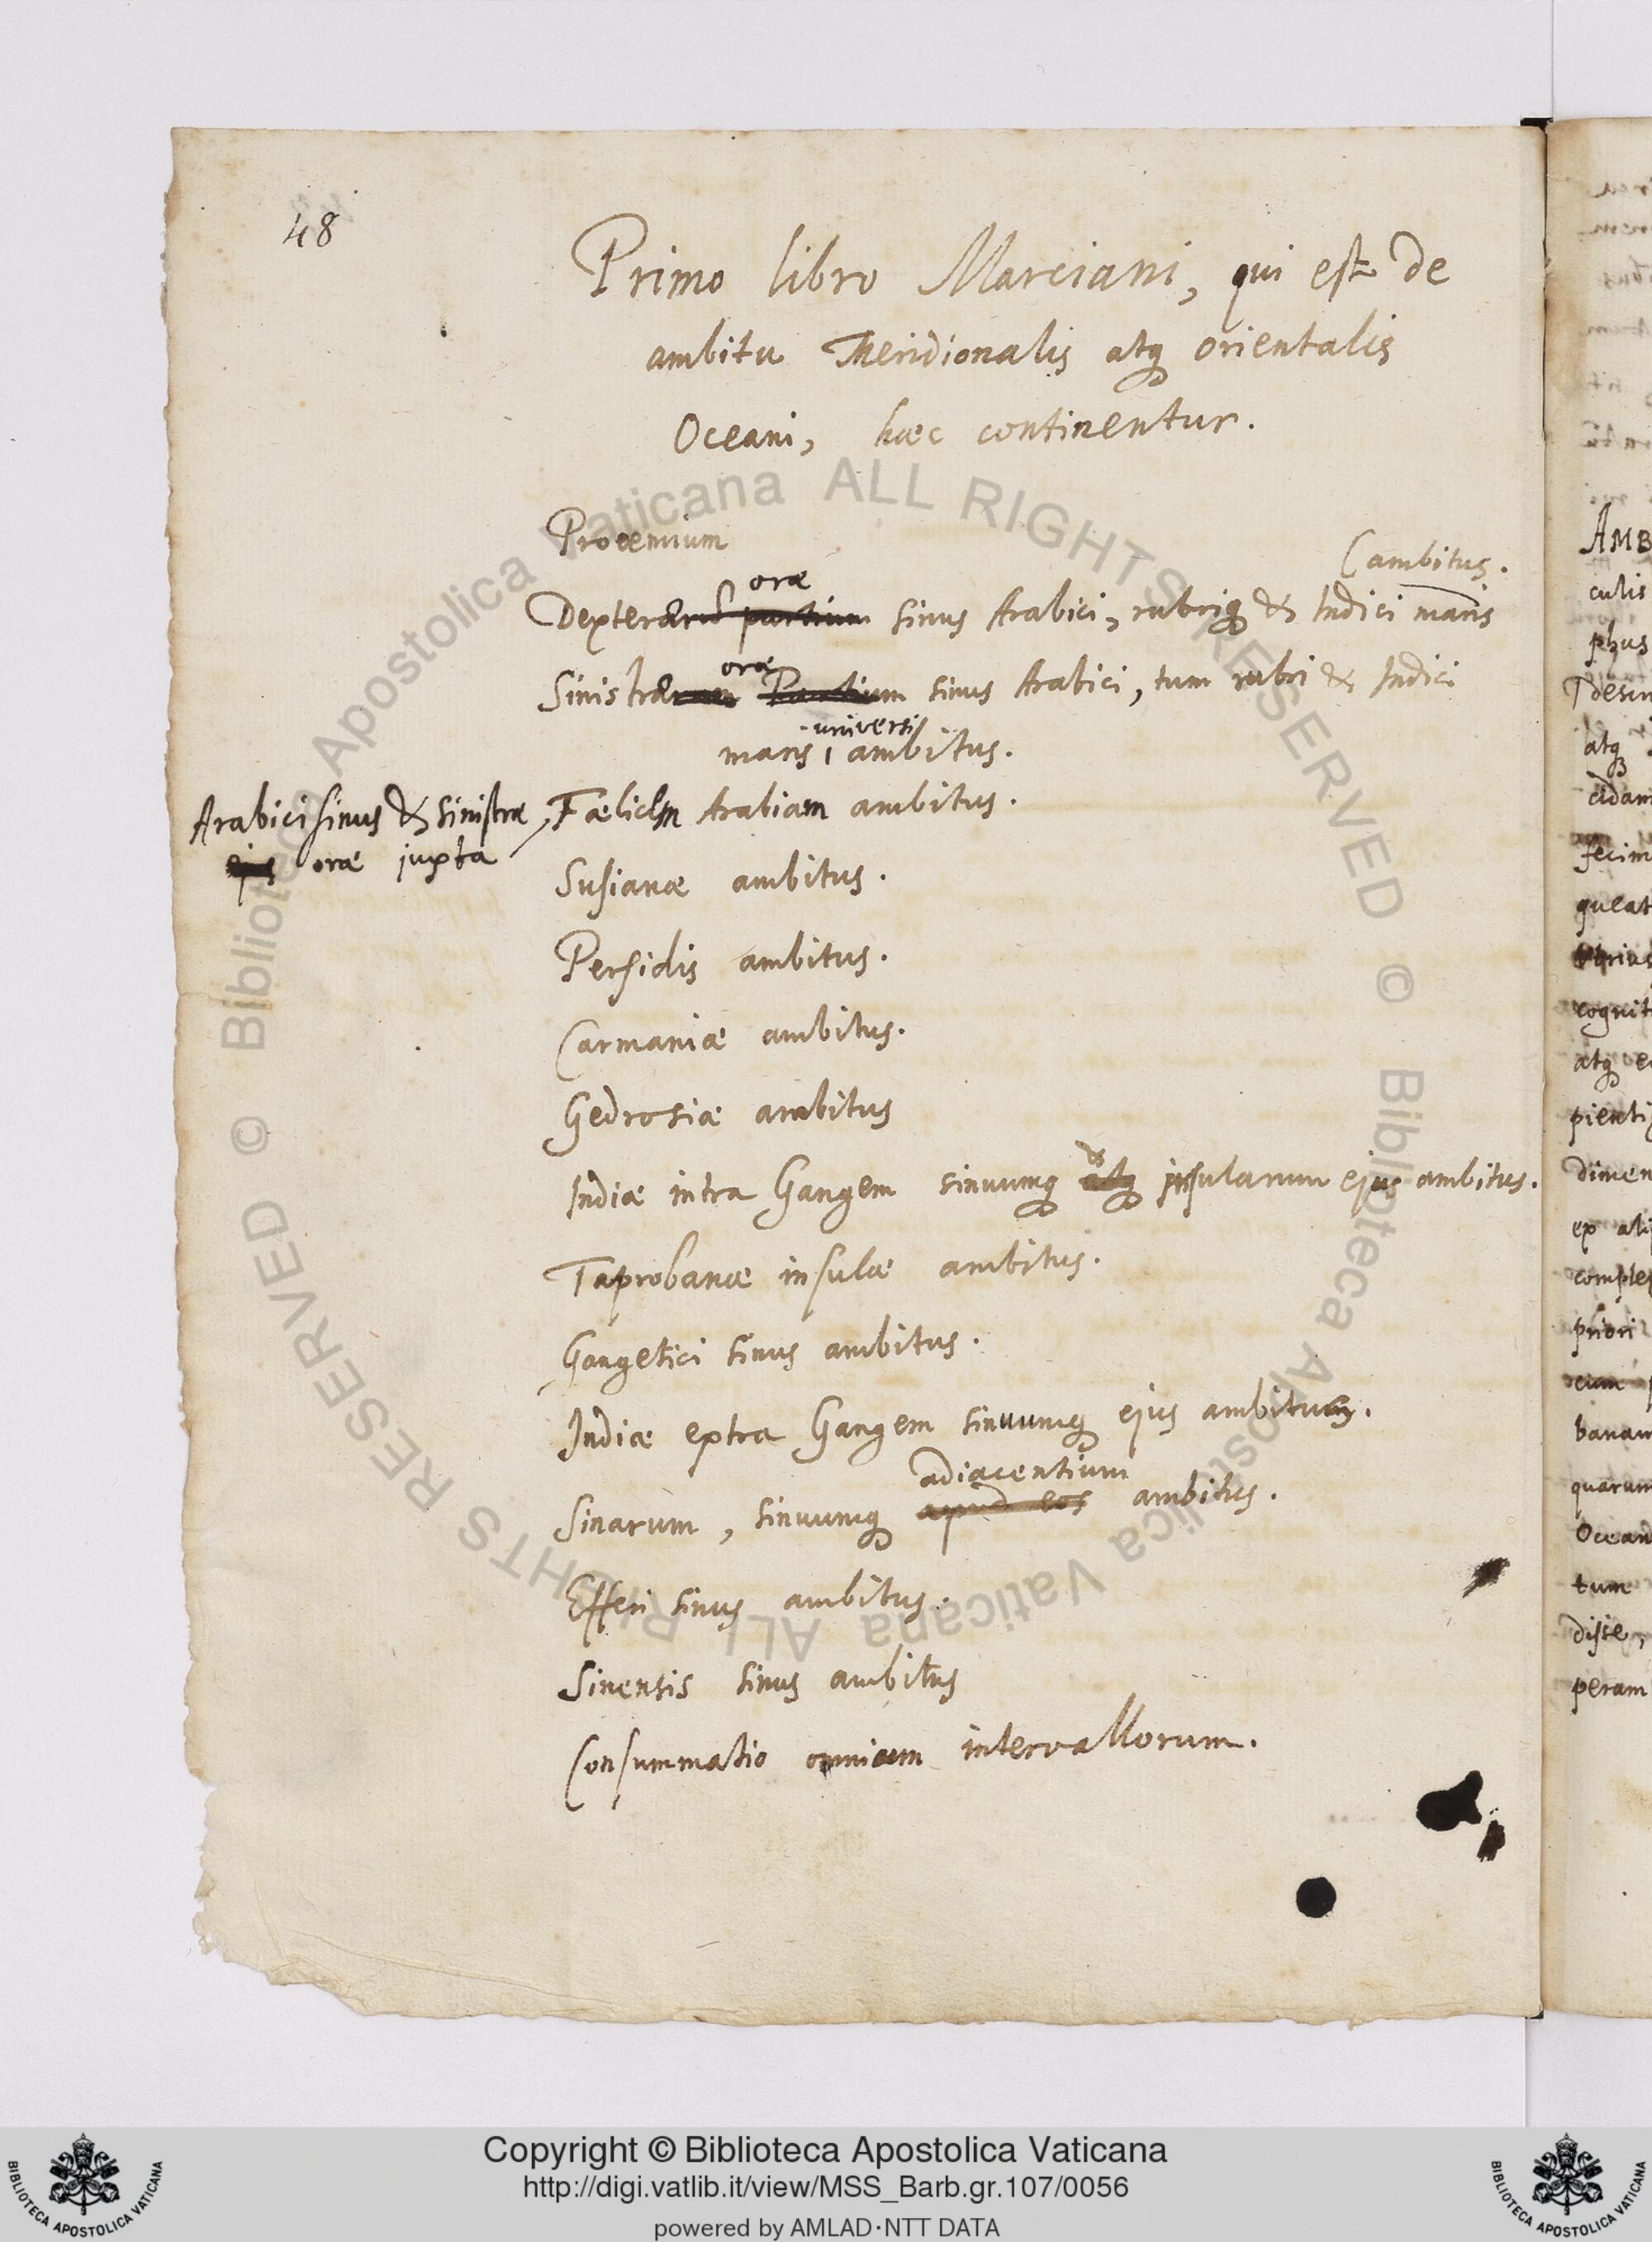 48
Primo libro Marciani, qui est de
ambitu Meridionalis atq orientalis
Oceani, hæc continentur.
Prooemium
(ambitus.
oræ
Dexterarū partium sinus Arabici, rubriq & Indici maris
oræ
Sinistrarum Partium sinus Arabici, tum rubri & Indici
universi
maris, ambitus.
Arabici sinus & sinistræ
ejus oræ juxta
Fælicem Arabiam ambitus.
Susianæ ambitus.
Persidis ambitus.
Carmaniæ ambitus.
Gedrosiæ ambitus
&
Indiæ intra Gangem sinuumq atq insularum ejus ambitus.
Taprobanæ insulæ ambitus.
Gangetici sinus ambitus.
Indiæ extra Gangem sinuumq ejus ambitus.
adiacentium
Sinarum, sinuumq apud eos ambitus.
Efferi sinus ambitus.
Sinensis sinus ambitus
Consummatio omnium intervallorum.
AMB
culis
phus
descr
atq
cidam
fecim
queat
cognit
atq e
pienti
dimen
ex ali
comple
priori
cum
banam
quarum
Ocean
tum
disse,
peram
© Biblioteca Apostolica Vaticana ALL RIGHTS RESERVED © Biblioteca Apostolica Vaticana ALL RIGHTS RESERVED
Copyright © Biblioteca Apostolica Vaticana
http://digi.vatlib.it/view/MSS_Barb.gr.107/0056
powered by AMLAD·NTT DATA
BIBLIOTECA APOSTOLICA VATICANA
BIBLIOTECA APOSTOLICA VATICANA